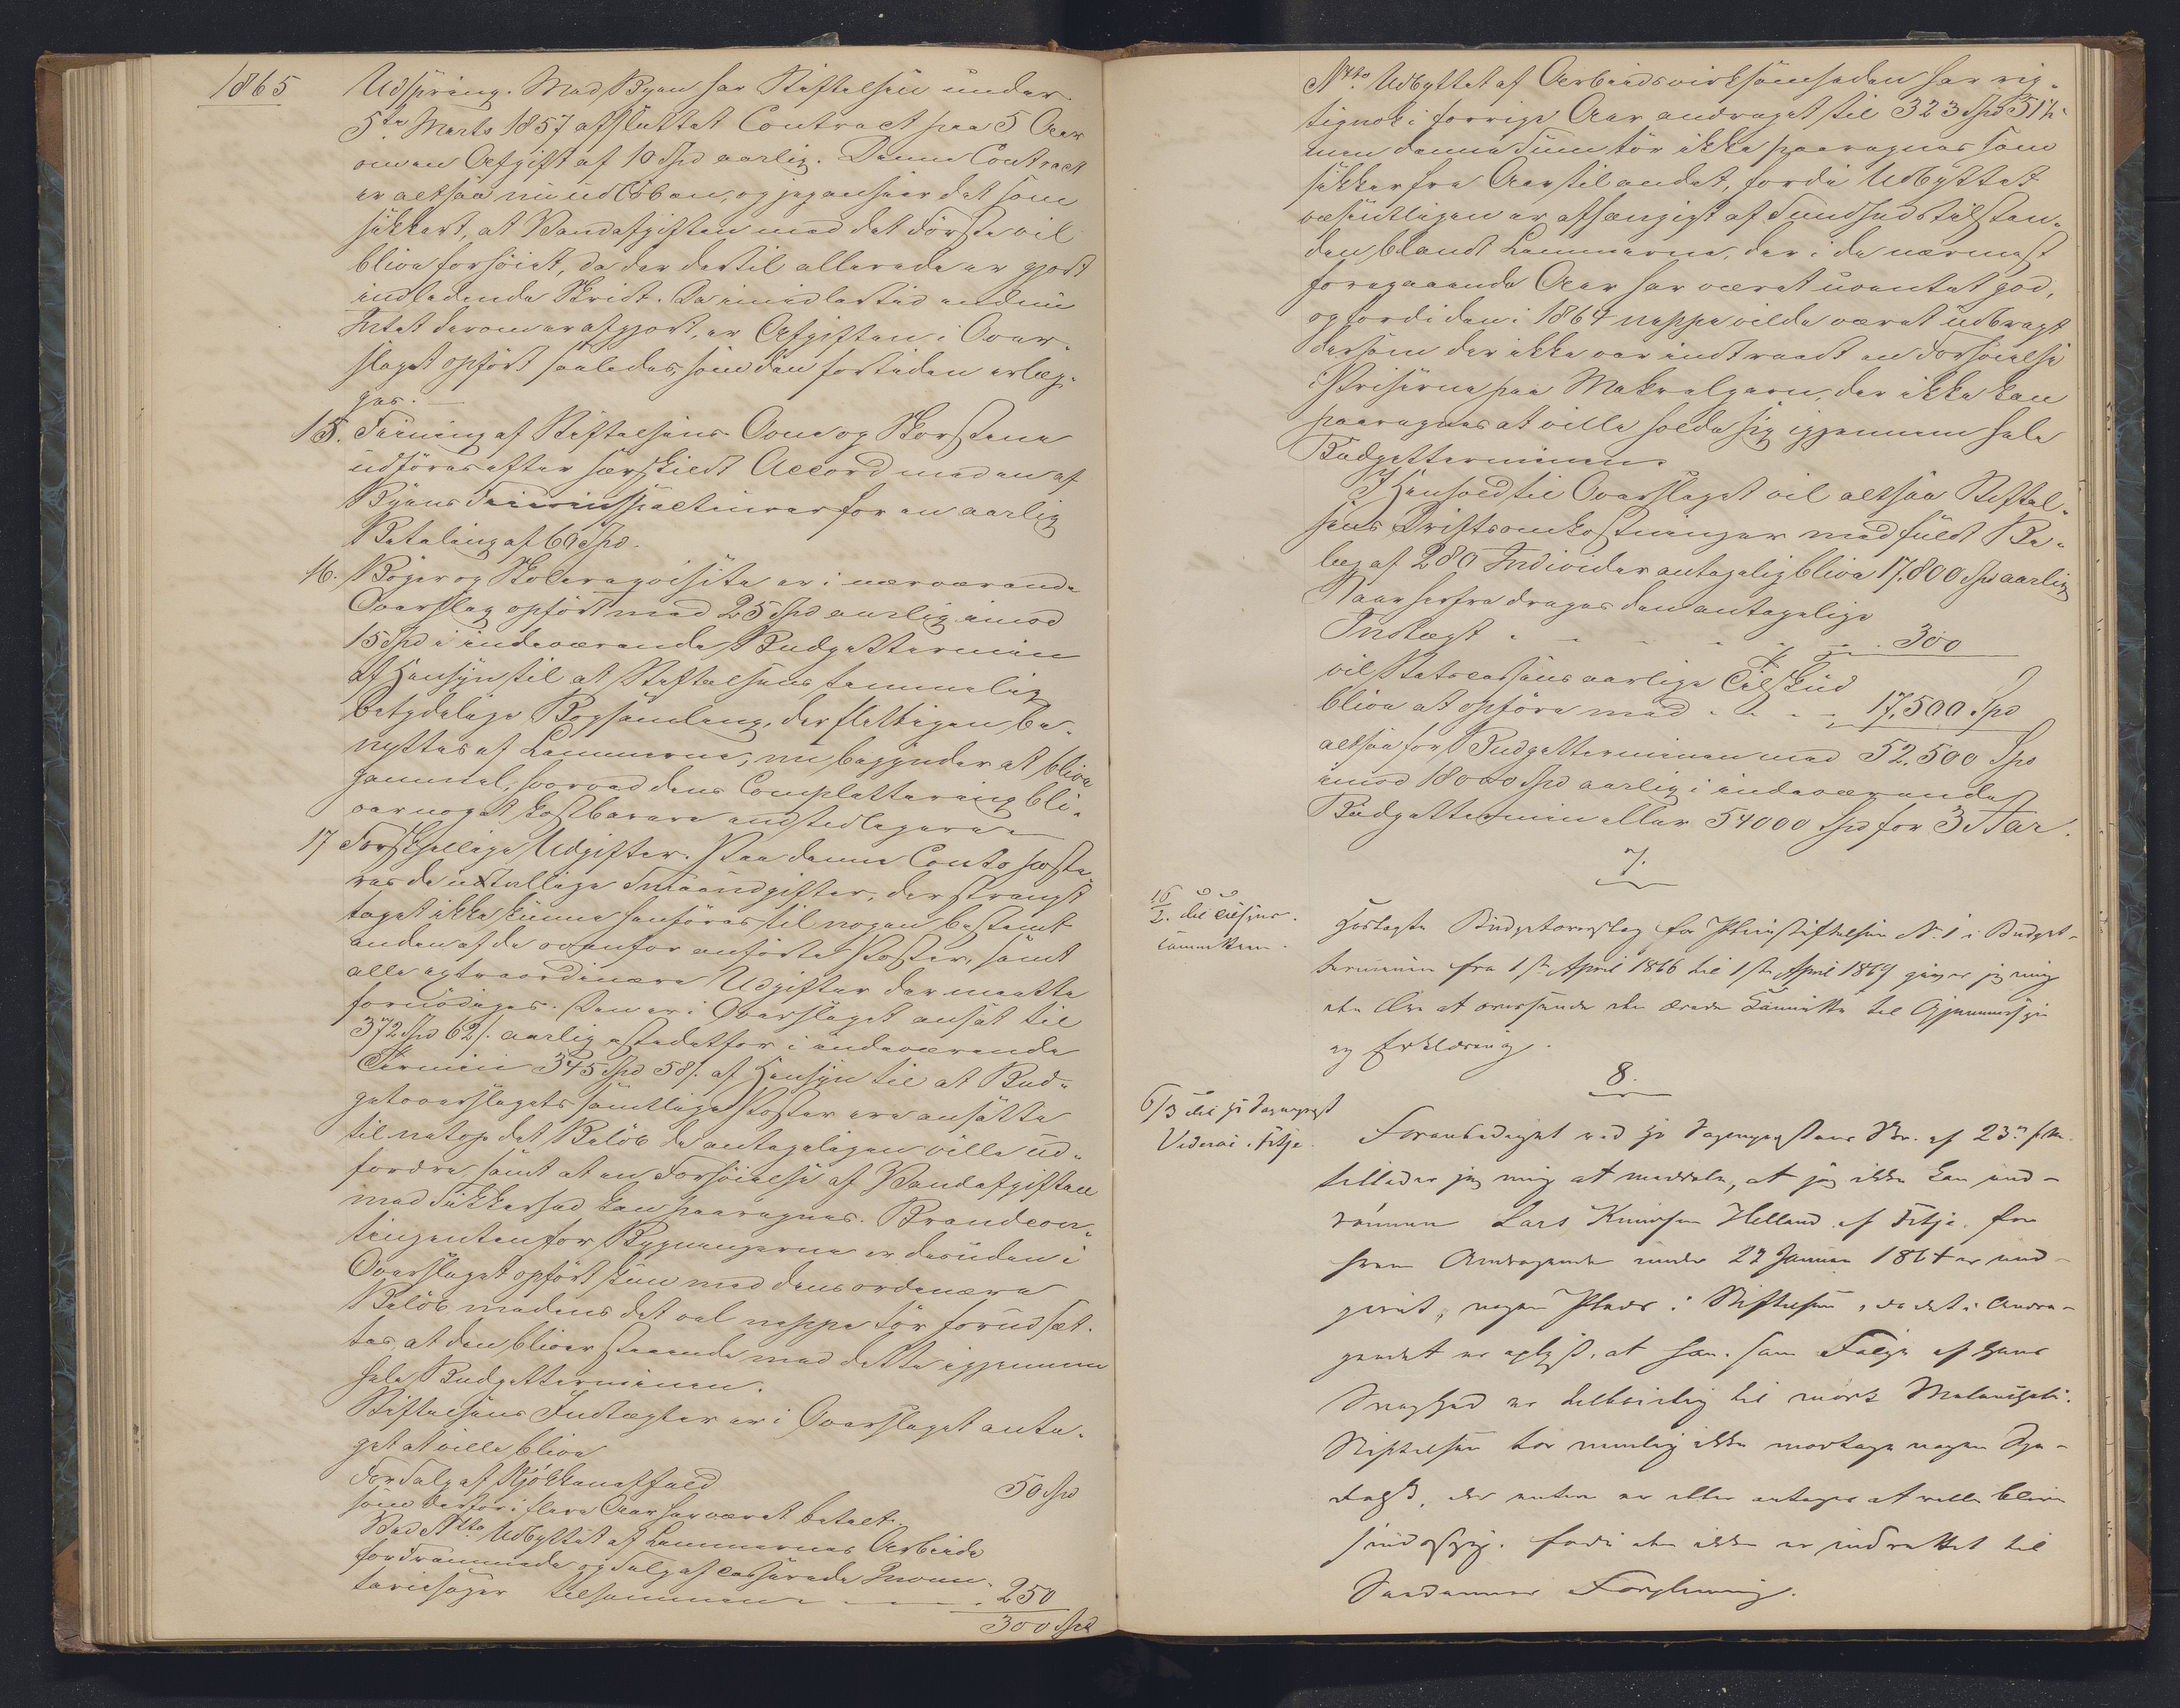 1865
Udspring. Med Byen har Stiftelsen under
5te Marts 1857 afsluttet Contract paa 5 Aar
om en Afgift af 10 Spd aarlig. Denne Contract
er altsaa nu udløben, og jeg anseer det som
sikkert, at Vandafgiften med det første vil
blive forhøiet, da der dertil allerede er gjort
indledende Skridt. Da imidlertid endnu
Intet derom er afgjort, er Afgiften i Over-
slaget opført saaledes, som den fortiden erlæg-
ges. —
15. Feining af Stiftelsens Ovne og Skorstene
udføres efter særskildt Accord med en af
Byens for en aarlig
Betaling af 60 Spd.
16. Bøger og Skolerequisita er i nærværende
Overslag opført med 25 Spd aarlig imod
15 Spd i indeværende Budgettermin
af Hensyn til at Stiftelsens temmelig
betydelige Bogsamling, der flittigen be-
nyttes af Lemmerne, nu begynder at blive
gammel, hvorved dens Complettering bli-
ver noget kostbarere end tidligere
17 Forskjellige Udgifter. Paa denne Conto poste-
res de utallige Smaaudgifter, der strengt
taget ikke kunne henføres til nogen bestemt
anden af de ovenfor anførte Poster, samt
alle extraordinære Udgifter der maatte
fornødiges. Den er i Overslaget ansat til
372 Spd 62 s. aarlig istedetfor i indeværende
Termin 345 Spd 58 s. af Hensyn til at Bud-
getoverslagets samtlige Poster ere ansatte
til netop det Beløb de antageligen ville ud-
fordre samt at en Forhøielse af Vandafgiften
med Sikkerhed kan paaregnes. Brandcon-
tingenten for Bygningerne er desuden i
Overslaget opført kun med dens ordinære
Beløb medens det vel neppe tør forudsæt-
tes, at den bliver staaende med dette igjennem
hele Budgetterminen.
Stiftelsens Indtægter er i Overslaget anta-
get at ville blive
For Salg af Kjøkkenaffald 50 Spd
som derfor i flere Aar har været betalt.
Ved Netto Udbyttet af Lemmernes Arbeide
for Fremmede og Salg af casserede Inven-
tariesager tilsammen 250
300 Spd
Netto Udbyttet af Arbeidsvirksomheden har rig-
tignok i forrige Aar andraget til 323 Spd 51 s.
men denne Sum tør ikke paaregnes som
sikker fra Aar til andet, fordi Udbyttet
væsentligen er afhængigt af Sundhedstilstan-
den blandt Lemmerne, der i de nærmest
foregaaende Aar har været uventet god,
og fordi den i 1864 neppe vilde været udbragt
dersom der ikke var indtraadt en Forhøielse
i Priserne paa Makrelgarn, der ikke kan
paaregnes at ville holde sig igjennem hele
Budgetterminen.
I Henhold til Overslaget vil altsaa Stiftel-
sens Driftsomkostninger med fuldt Be-
læg af 280 Individer antagelig blive 17,800 Spd aarlig
Naar herfra drages den antagelige
Indtægt . . . . . . . 300
vil Statscassens aarlige Tilskud
blive at opføre med . . . . 17,500 Spd
altsaa for Budgetterminen med 52,500 Spd
imod 18000 Spd aarlig i indeværende
Budgettermin eller 54000 Spd for 3 Aar.
7.
15/2. til Tilsyns-
comiteen.
Hoslagte Budgetoverslag for Pleiestiftelsen No 1 i Budget-
terminen fra 1ste April 1866 til 1ste April 1869 giver jeg mig
den Ære at oversende den ærede Committee til Gjennemsyn
og Erklæring.
8.
6/3 til Hr Sogneprest
i Fitje.
Foranlediget ved Hr Sogneprestens Skr. af 23de f.M.
tillader jeg mig at meddele, at jeg ikke kan ind-
rømme Lars Knudsen Helland af Fitje, for
hvem Andragende under 27 Januar 1864 er ind-
givet, nogen Plads i Stiftelsen, da det i Andra-
gendet er oplyst, at han som Følge af hans
Svaghed er tilbøielig til mørk Melancholi.
Stiftelsen tør nemlig ikke modtage nogen Spe-
dalsk, der enten er eller antages at ville blive
sindssyg, fordi den ikke er indrettet til
Saadannes Forpleining.